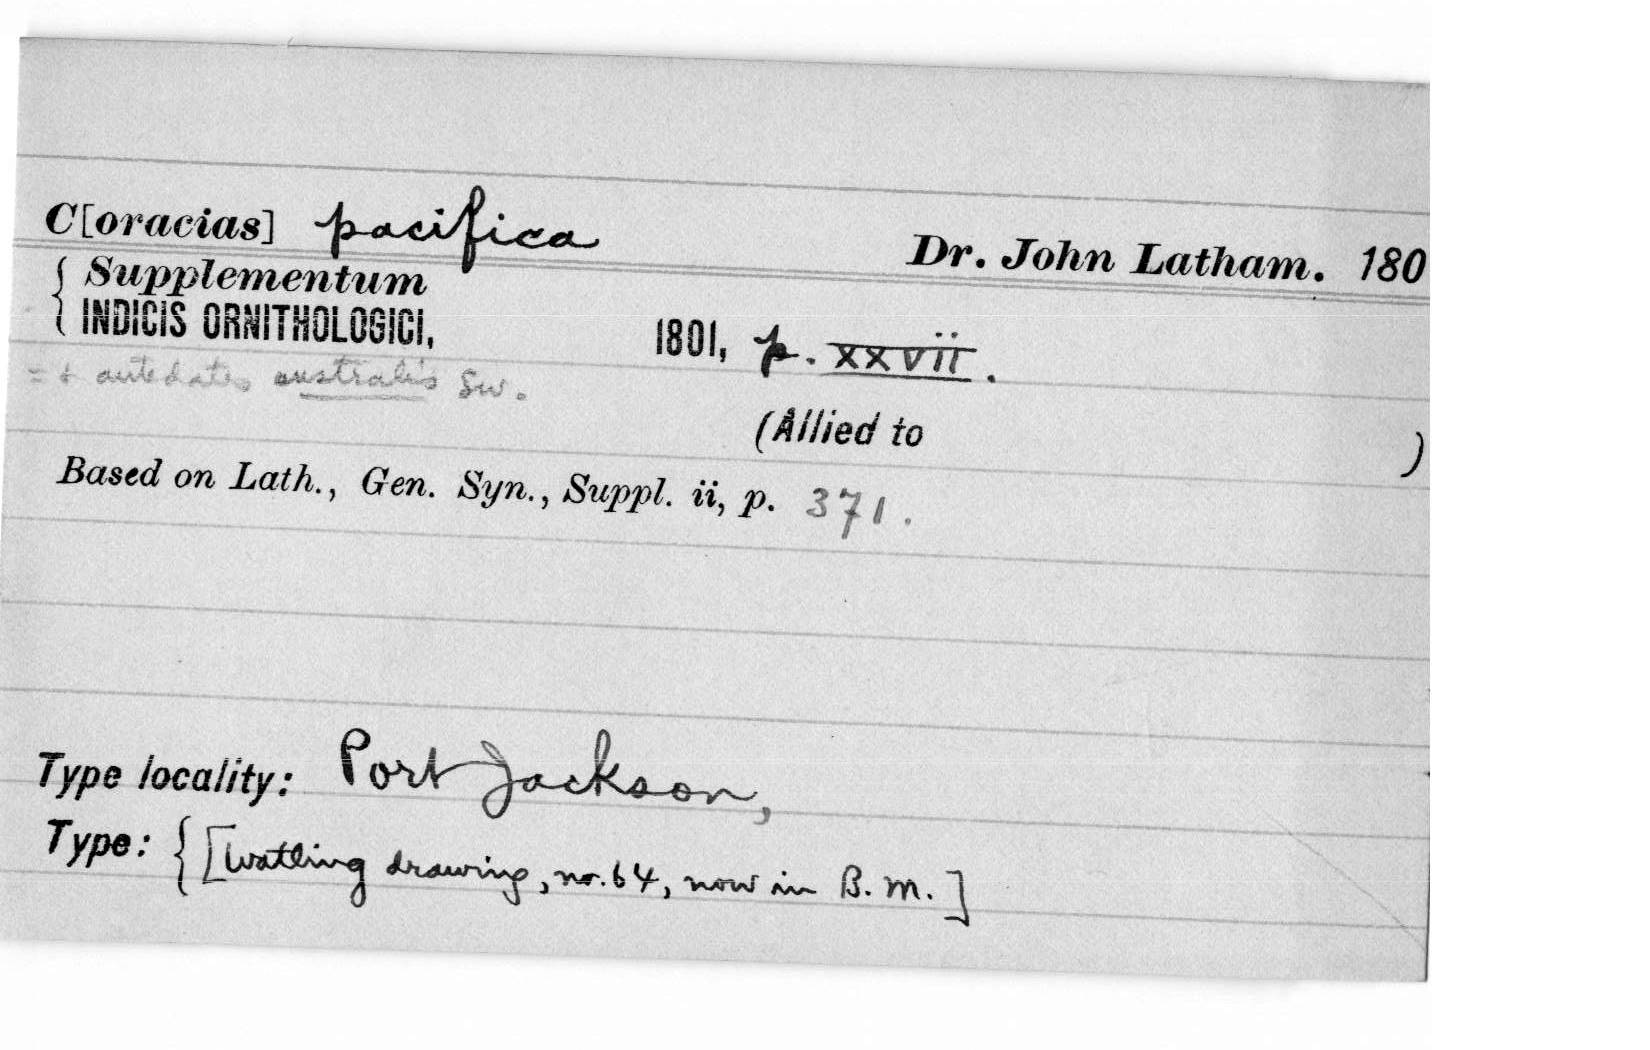 C[oracias] pacifica Dr. John Latham. 180
Supplementum
INDICIS ORNITHOLOGICI, 1801, p. xxvii.
= & antedates australis Sw.
(Allied to )
Based on Lath., Gen. Syn., Suppl. ii, p. 371.
Type locality: Port Jackson,
Type: { [Watling drawing, no. 64, now in B. M.]